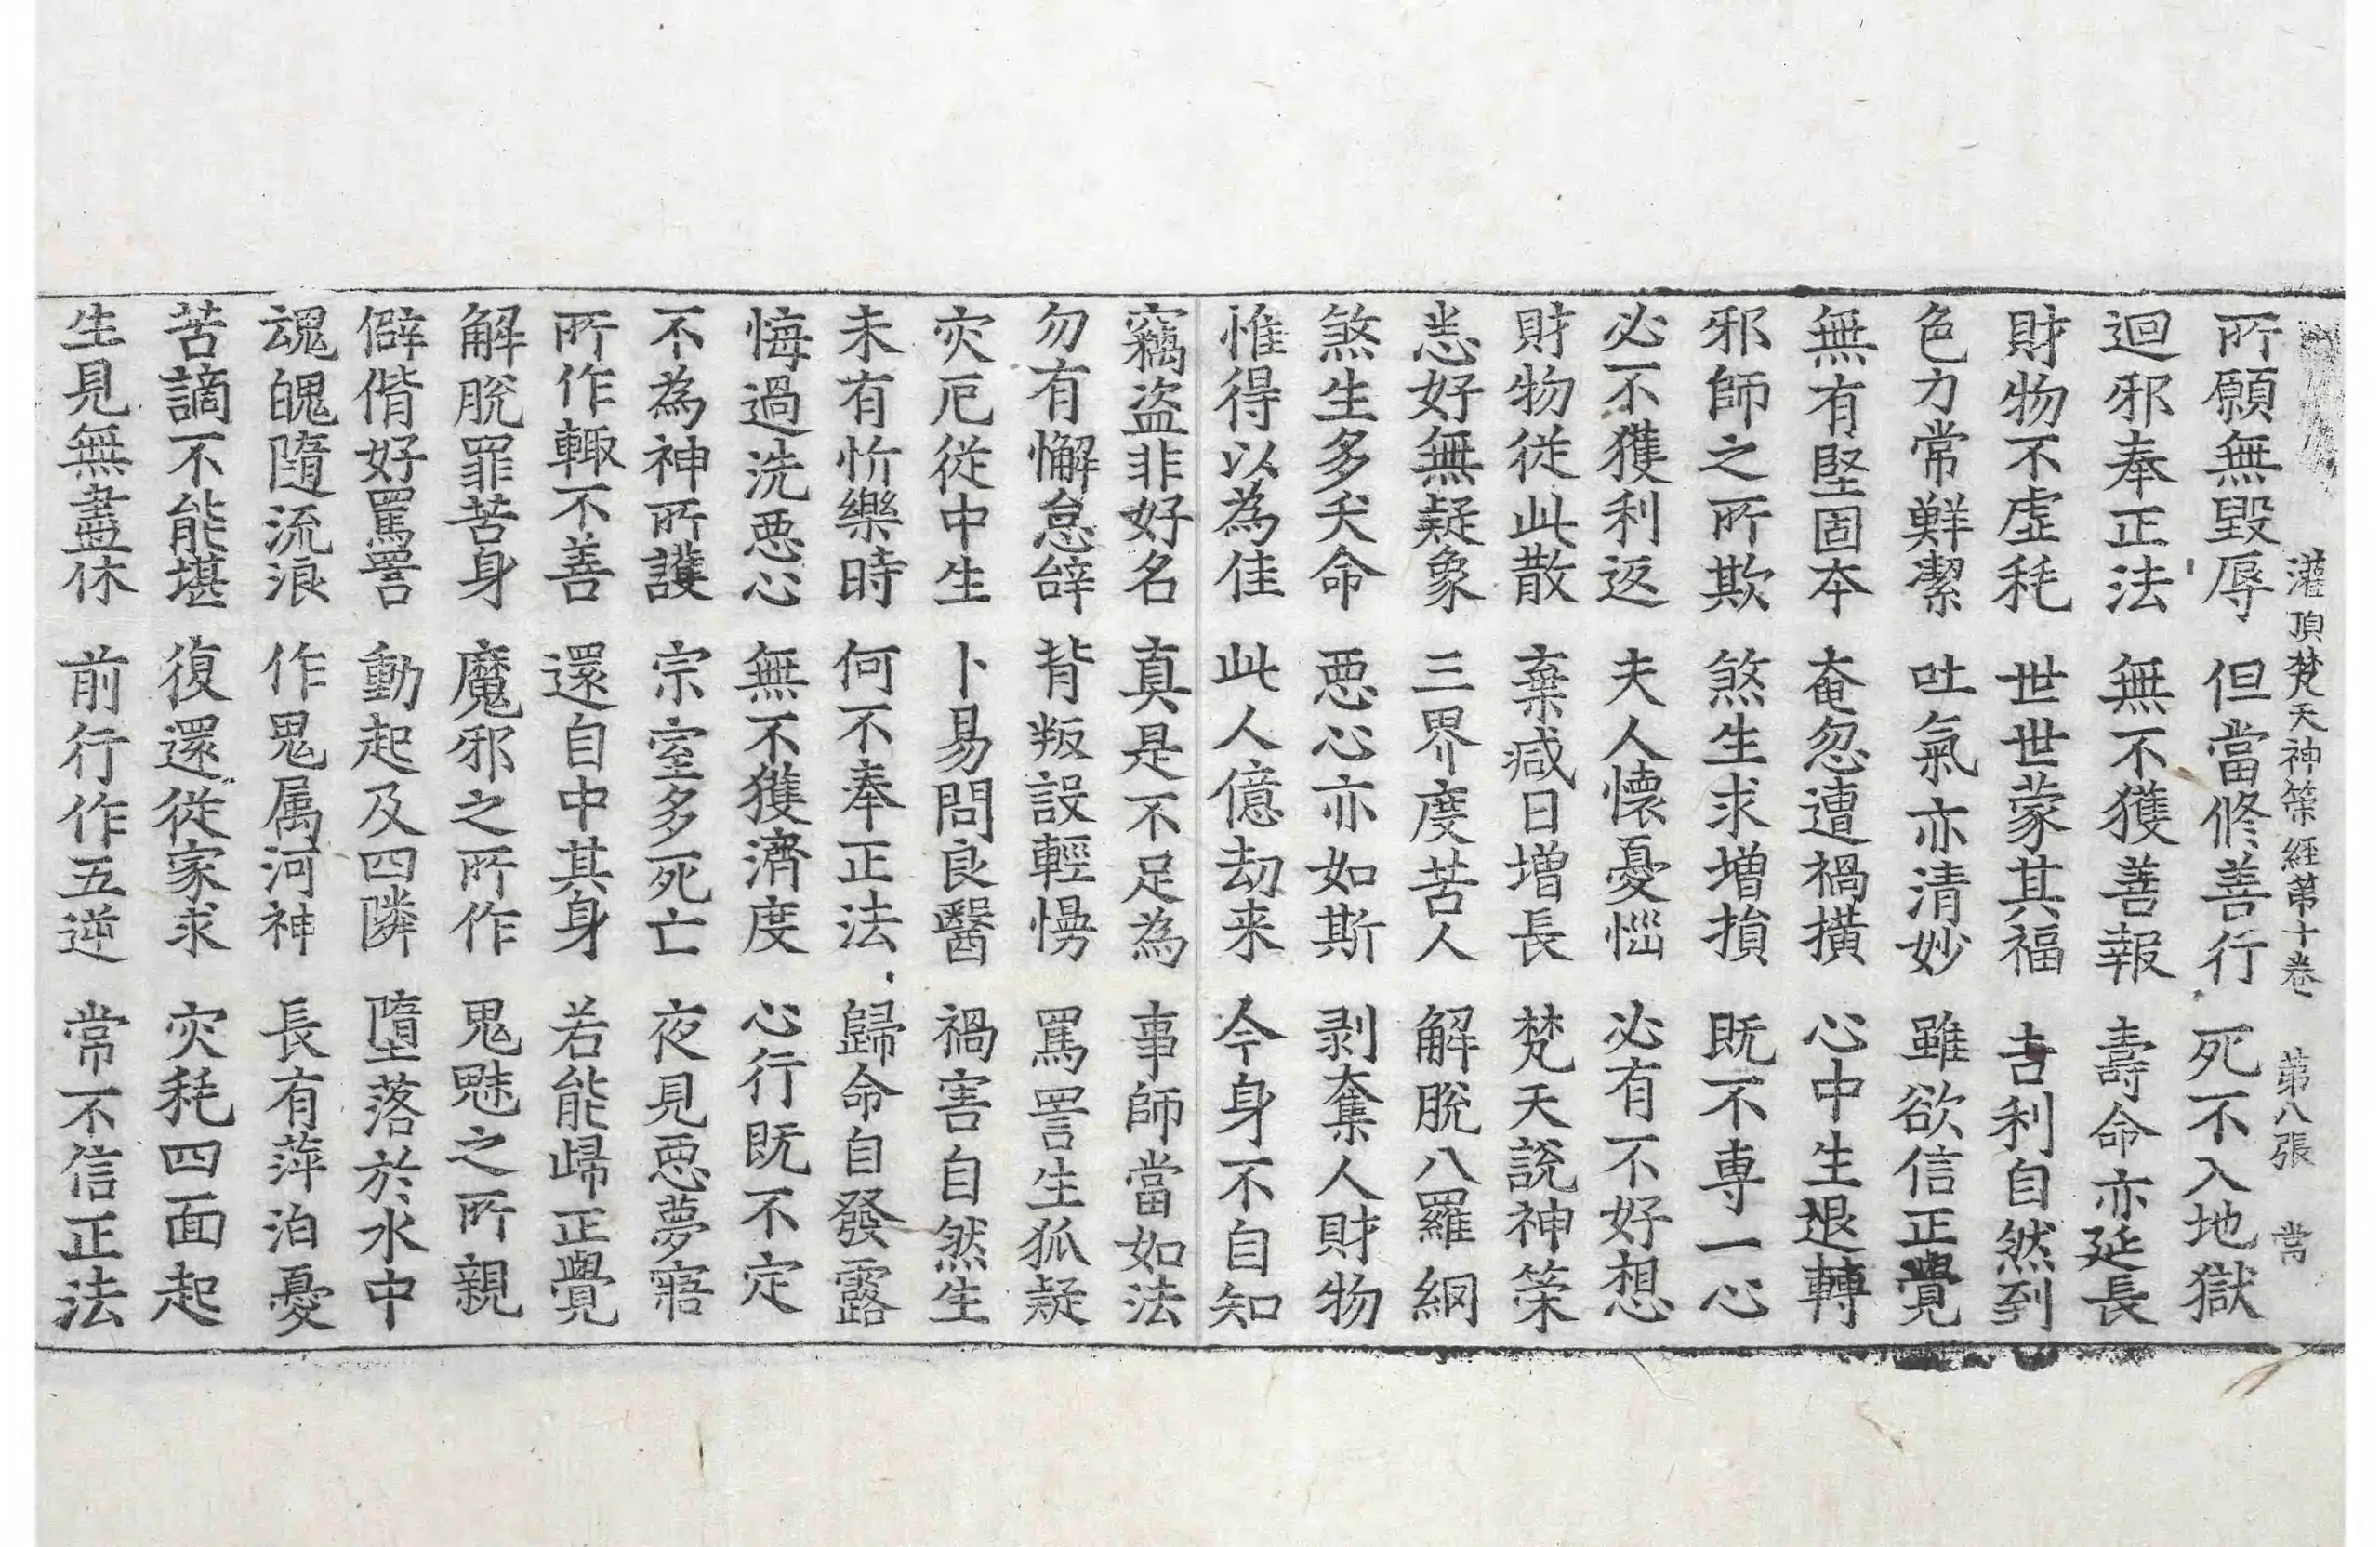 灌頂梵天神策經第十卷 第八張 常
所願無毀辱 但當修善行 死不入地獄
迴邪奉正法 無不獲善報 壽命亦延長
財物不虛耗 世世蒙其福 吉利自然到
色力常鮮潔 吐氣亦清妙 雖欲信正覺
無有堅固本 奄忽遭禍撗 心中生退轉
邪師之所欺 煞生求增損 既不專一心
必不獲利返 夫人懷憂惱 必有不好想
財物從此散 棄減日增長 梵天說神策
恙好無疑象 三界度苦人 解脫八羅網
煞生多夭命 惡心亦如斯 剥奪人財物
惟得以為佳 此人億劫来 今身不自知
竊盜非好名 真是不足為 事師當如法
勿有懈怠辞 背叛設輕慢 罵詈生狐疑
灾厄從中生 卜易問良醫 禍害自然生
未有忻樂時 何不奉正法 歸命自發露
悔過洗惡心 無不獲濟度 心行既不定
不為神所護 宗室多死亡 夜見惡夢寤
所作輙不善 還自中其身 若能歸正覺
解脫罪苦身 魔邪之所作 鬼魅之所親
僻偕好罵詈 動起及四隣 墮落於水中
魂魄隨流浪 作鬼属河神 長有萍泊憂
苦謫不能堪 復還從家求 灾耗四面起
生見無盡休 前行作五逆 常不信正法